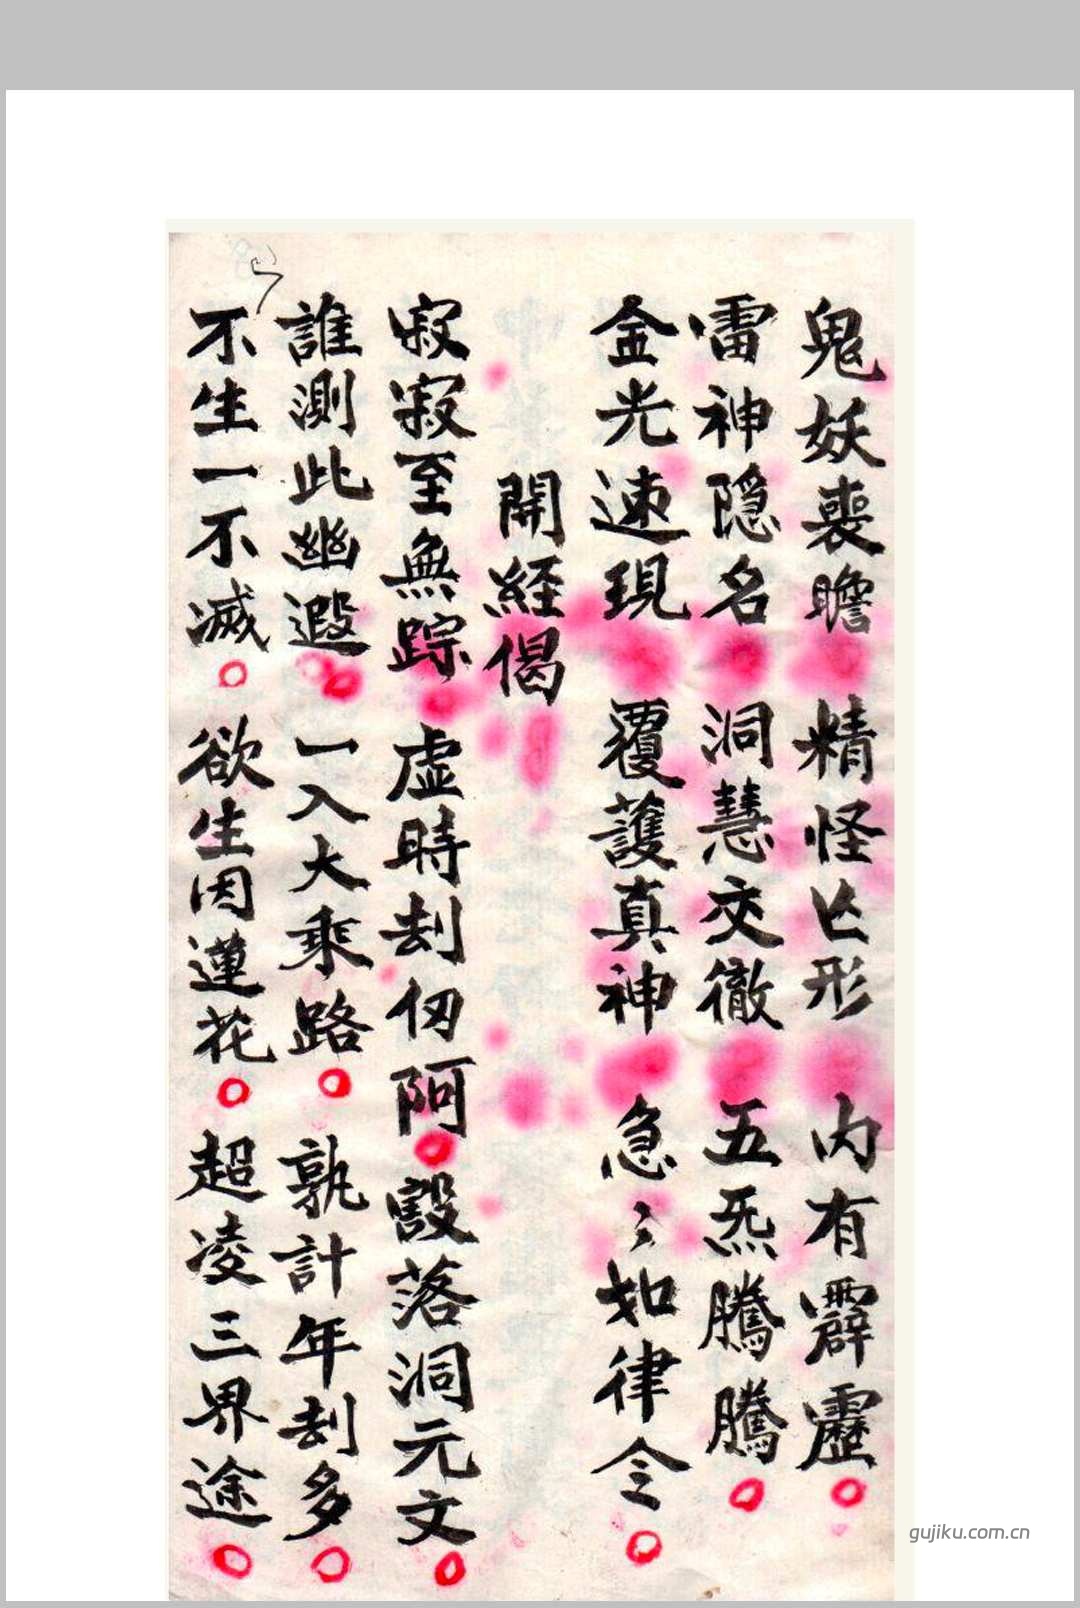 鬼妖喪瞻 精怪亾形 內有霹靂
雷神隱名 洞慧交徹 五炁騰騰
金光速現 覆護真神 急〻如律令
開経偈
寂寂至無踪 虛時刦仞阿 豁落洞元文
誰測此幽遐 一入大乘路 孰計年刦多
不生一不滅 欲生因蓮花 超凌三界途
gujiku.com.cn